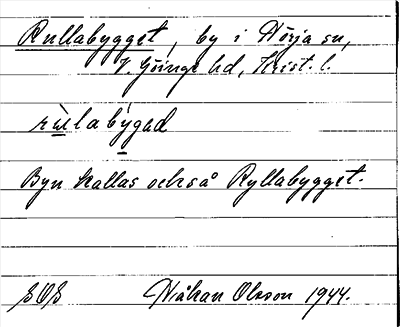 Rullabygget, by i Nörja sn,
V. Göinge hd, Krist. l.
rùllabỳgəd
Byn kallas också Ryllabygget.
SOS Håkan Olsson 1944.